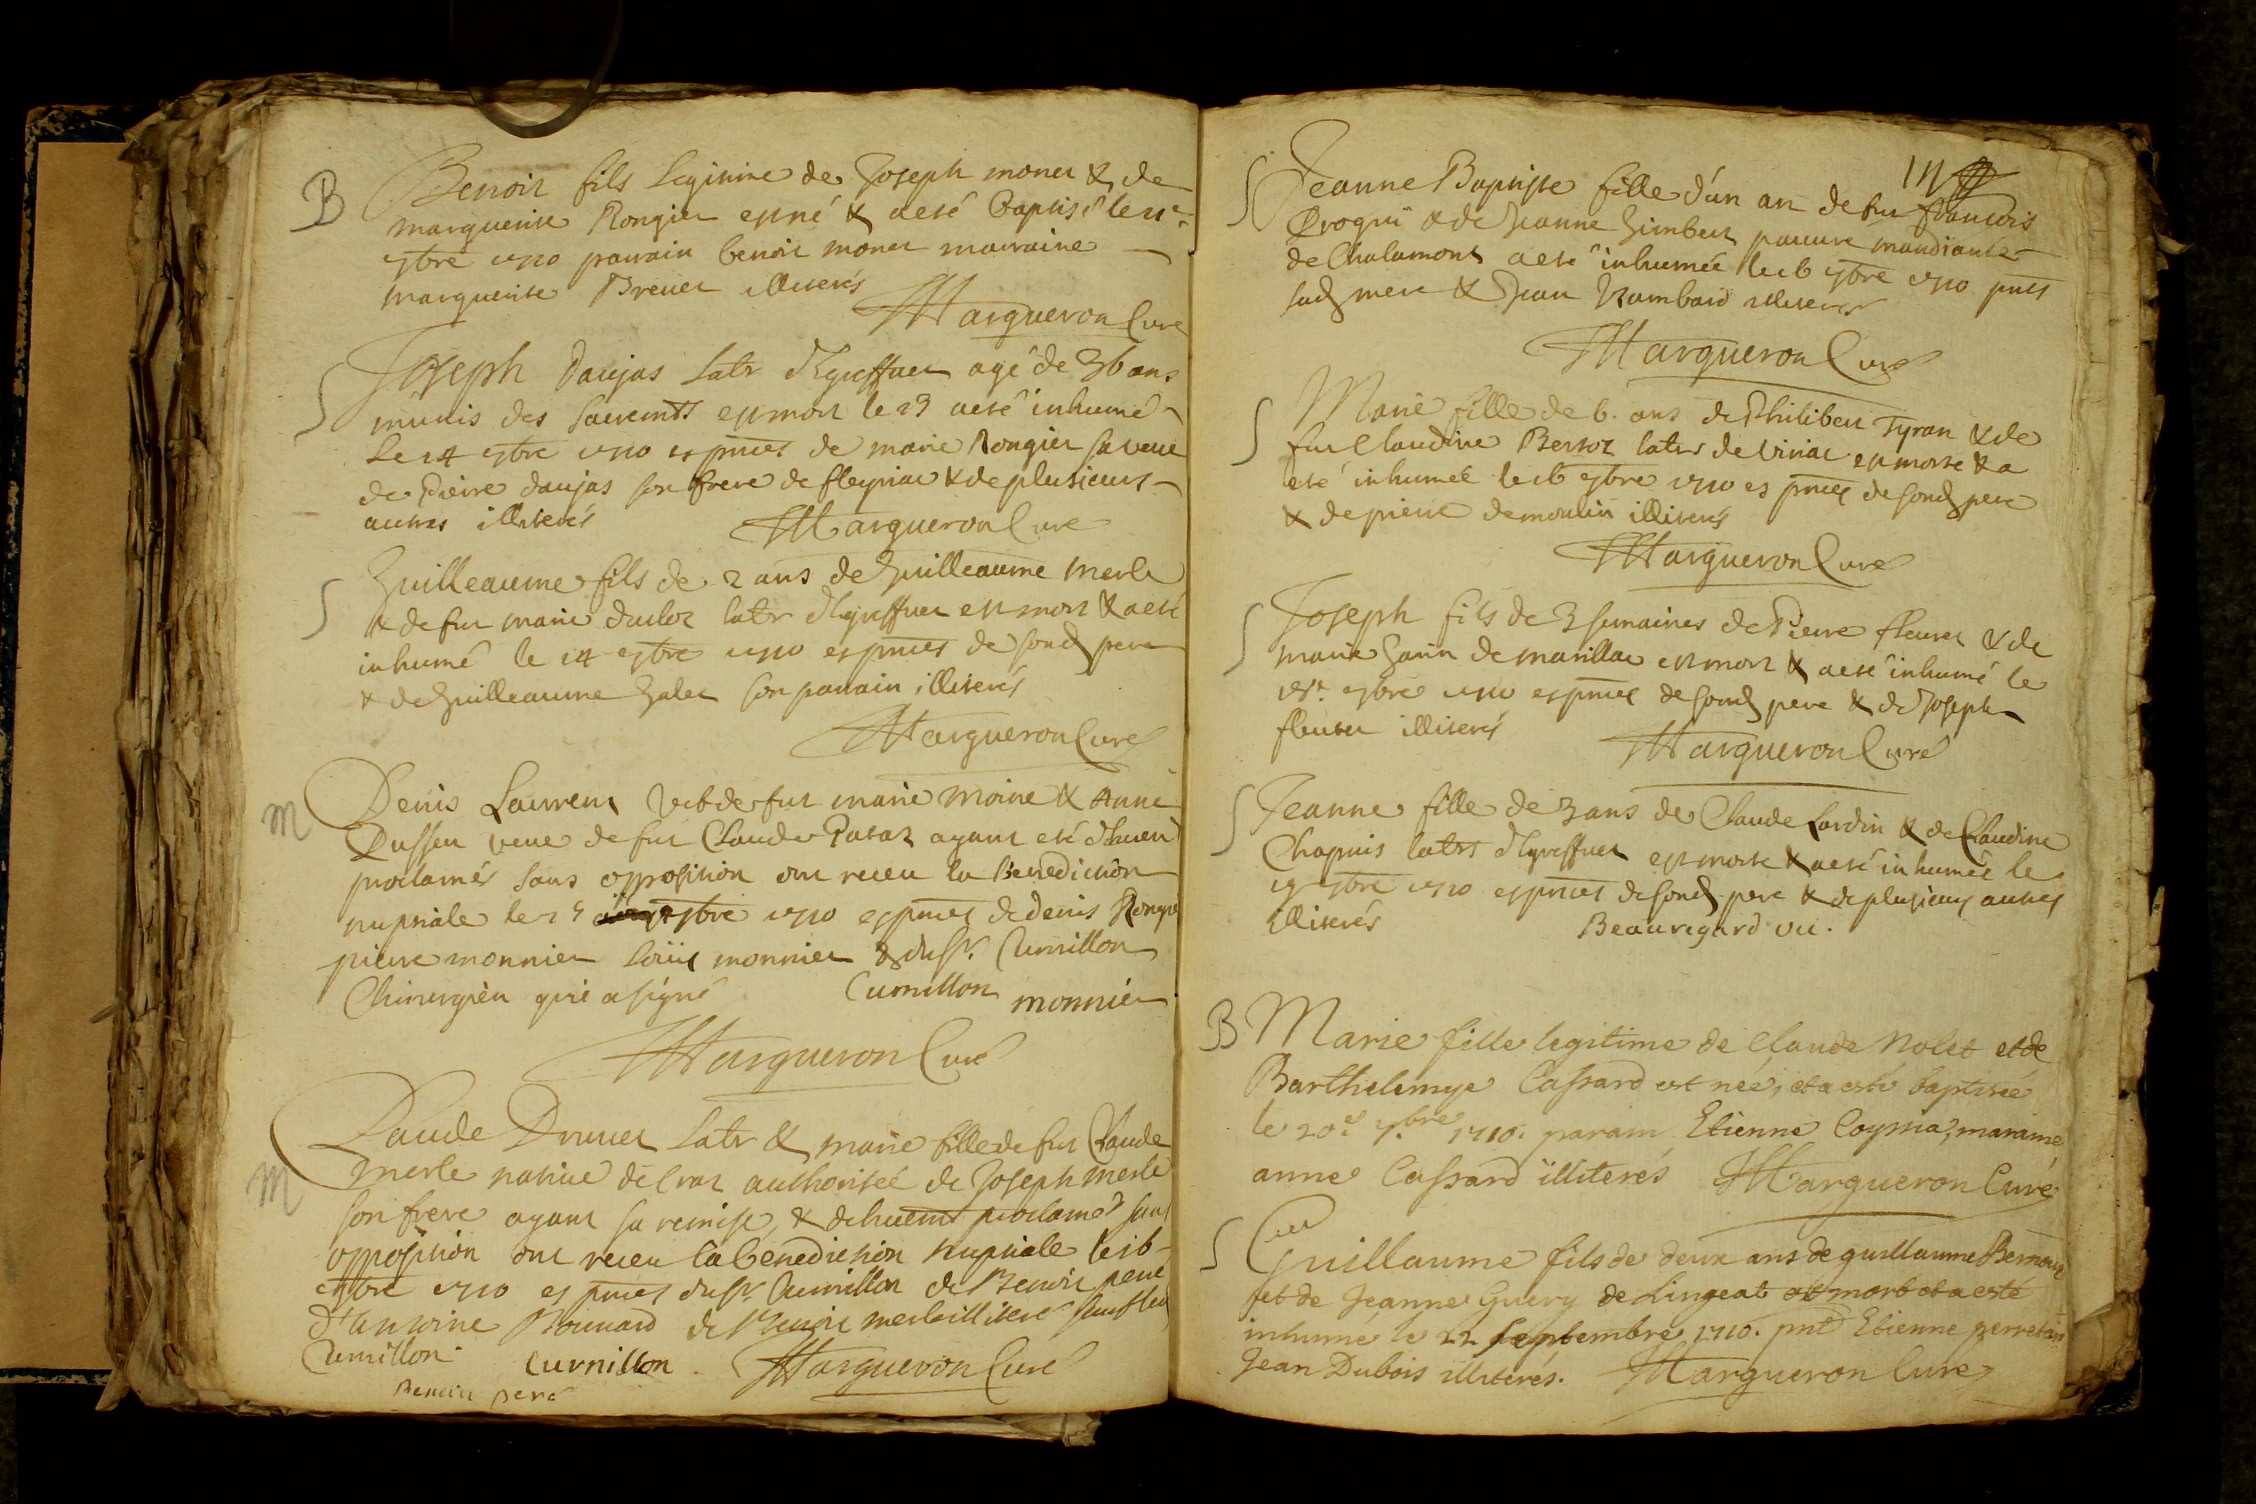 B
Benoit fils legitime de Joseph monet & de
marguerite Rongier est né & a eté Baptisé le 11e
7bre 1710 parrain benoit monet marraine
marguerite Brevet illiterés
Margueron Curé
S
Joseph daujas labr agé de 36 ans
munis des sacremts est mort le 13 a eté inhumé
le 14 7bre 1710 es pnces de marie Rongier sa veuve
de Pierre daujas son frere de fleyriac & de plusieurs
autres illiterés
Margueron Curé
S
Guilleaume fils de 2 ans de Guilleaume merle
& de fue marie labr est mort & a eté
inhumé le 14 7bre 1710 es pnces de sond pere
& de Guilleaume Galet son parrain illiterés
Margueron Curé
M
Denis Laurent de fue marie moine & Anne
Dusseu veuve de fut Claude Patat ayant eté dhuemt
proclamés sans opposition ont receu la Benediction
nuptiale le 15 7bre 1710 es pnces de denis
pierre monnier loüis monnier & du sr. Curnillon
Chirurgien qui a signé
Curnillon monnier
Margueron Curé
M
Claude Druvet labr & marie fille de fut Claude
merle native de Cras authorisée de Joseph merle
son frere ayant sa remise, & dehuemt proclamés sans
opposition ont receu la benediction nuptiale le 16
7bre 1710 es pnces du sr. Curnillon de Benoit pere
d'Antoine Bouuard de Benoit merle illiteré sauf led
Curnillon
Curnillon Margueron Curé
Benoit pere
S
Jeanne Baptiste fille d'un an de fut francois
Progui & de Jeanne Gimbert pauvre mandiante
de Chalamont a eté inhumée le 16 7bre 1710 pnts
sad mere & Jean Rambard illiterés
Margueron Curé
S
Marie fille de 6. ans de Philibert Tyran & de
fue Claudine Bersot labrs de est morte & a
eté inhumée le 16 7bre 1710 es pnces de sond pere
& de pierre demoulin illiterés
Margueron Curé
S
Joseph fils de 3 semaines de Pierre fleuret & de
marie Garin de marillac est mort & a eté inhumé le
7bre 1710 es pnces de sond pere & de Joseph
fleuret illiterés
Margueron Curé
S
Jeanne fille de 3 ans de Claude Lardin & de Claudine
Chapuis labrs est morte & a eté inhumée le
19 7bre 1710 es pnces de sond pere & de plusieurs autres
illiterés
Beauregard vic.
B
Marie fille legitime de Claude Nolet et de
Barthelemye Cassard est née, et a esté baptisée
le 20e 7.bre 1710. parain Etienne Coyssia, maraine
anne Cassard illiterés Margueron Curé
S
Guillaume fils de deux ans de guillaume
et de Jeanne Guery de Lingeat est mort et a esté
inhumé le 22 septembre 1710. pnts Etienne perretan
Jean Dubois illiterés. Margueron Curé